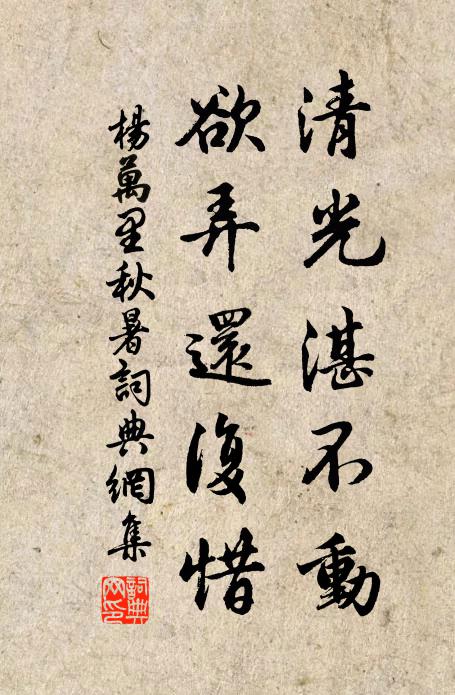 清光湛不動
欲弄還復惜
楊萬里秋暑詞典網集
詞典網印